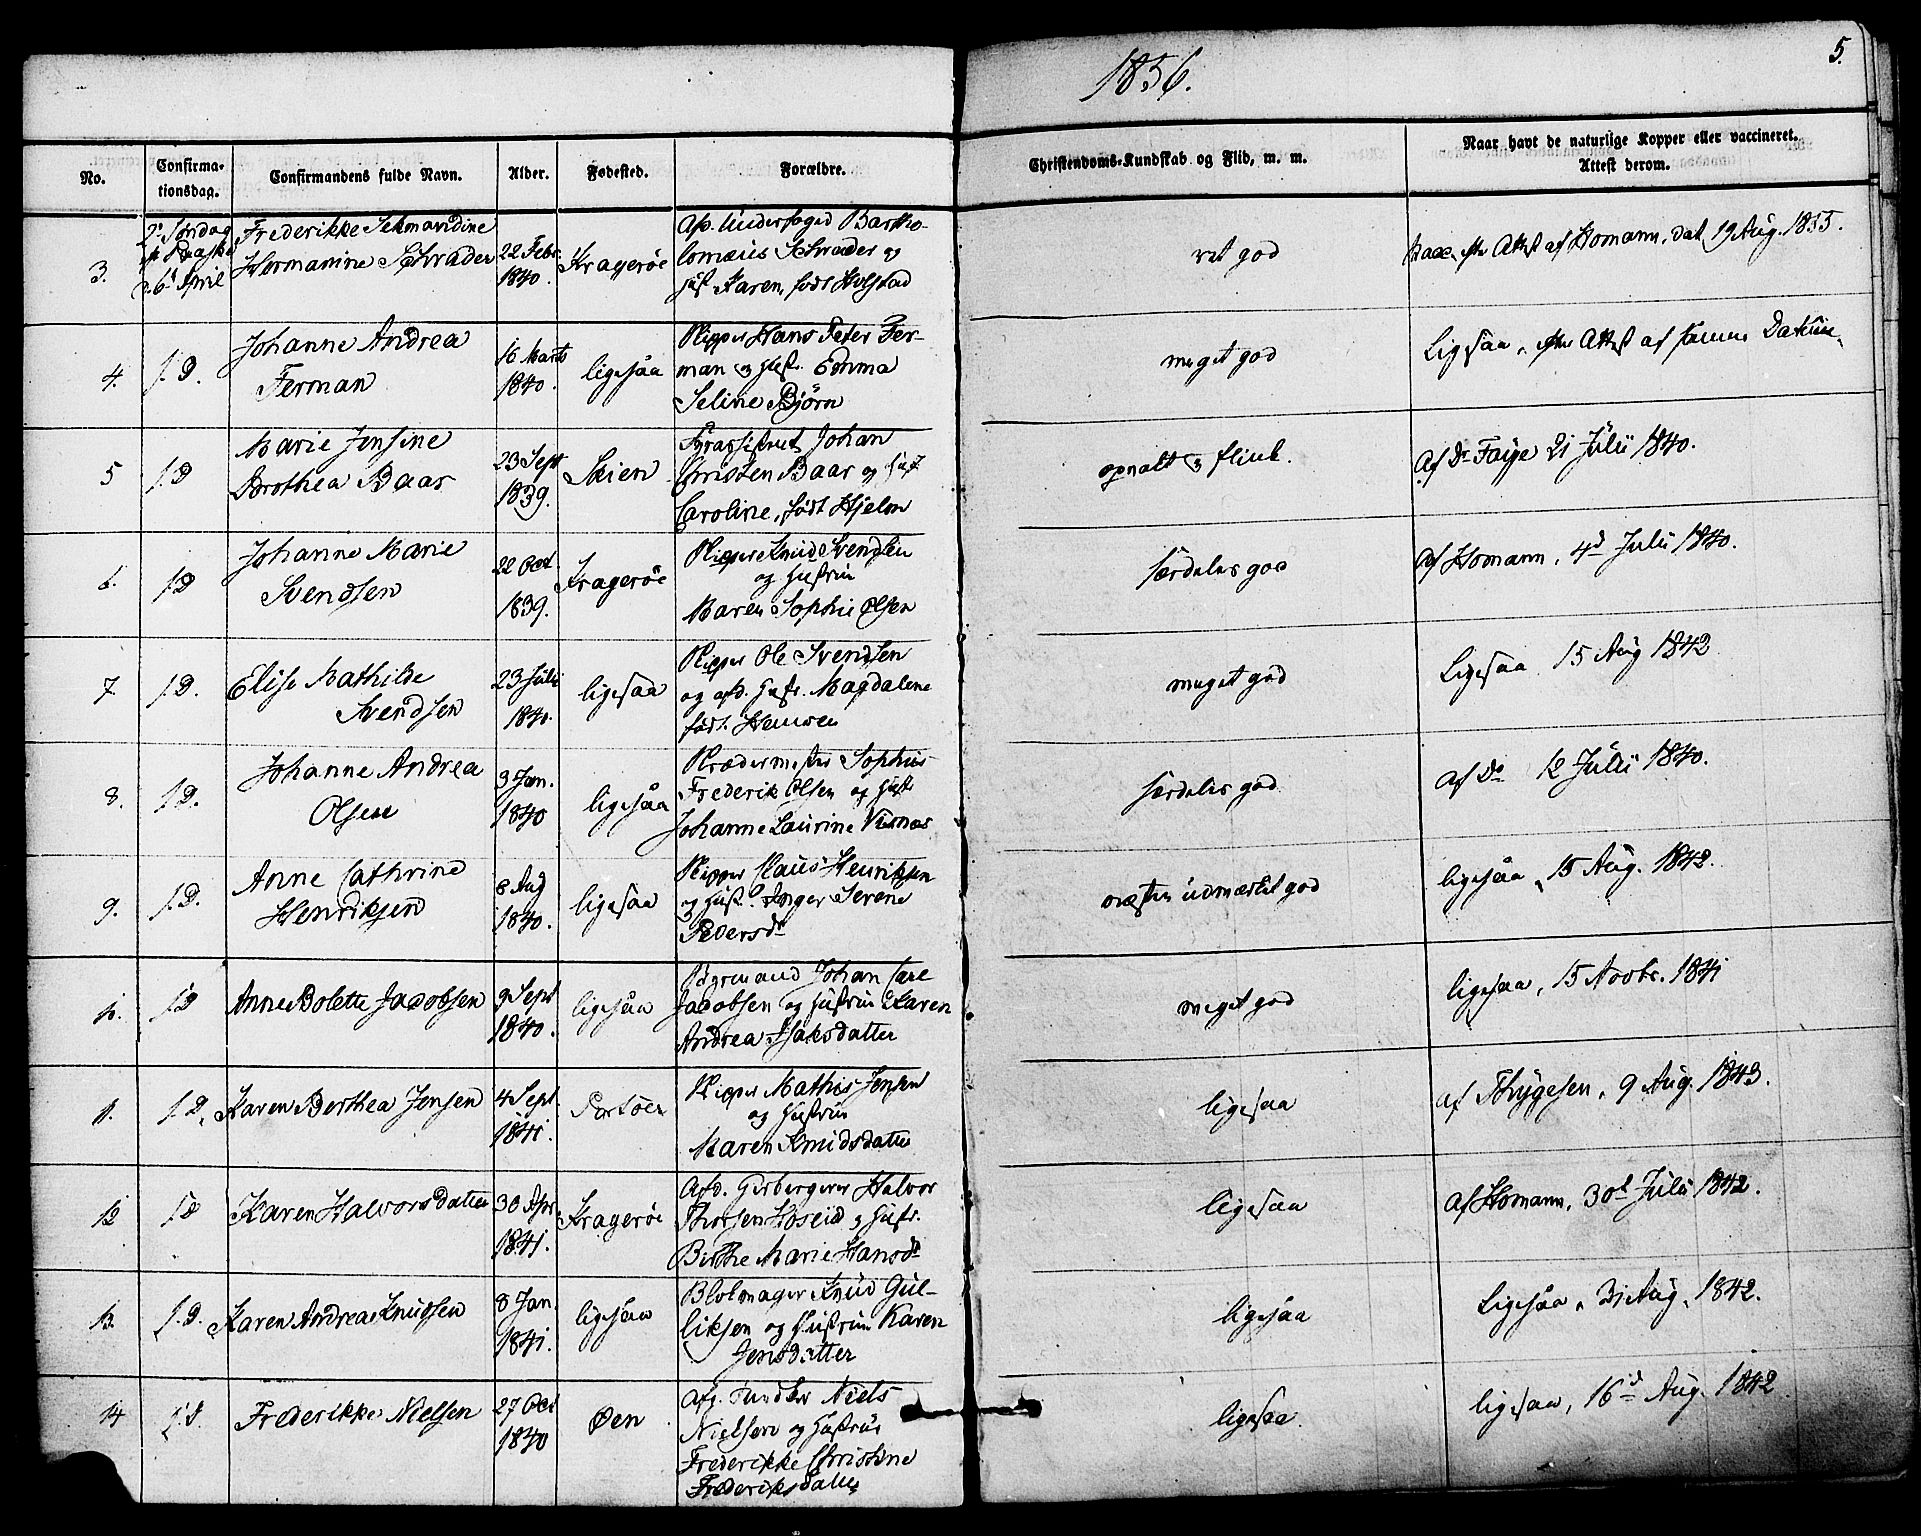 1856.
5.
No.
Confirma-
tionsdag.
Confirmandens fulde Navn.
Alder.
Fødested.
Forældre.
Christendoms-Kundskab og Flid, m. m.
Naar havt de naturlige Kopper eller vaccineret.
Attest derom.
3.
Søndag
Paaske
April
Frederikke
Hermanine Schrader
22 Febr
1840.
Kragerøe
Afd. Undertoged Bartho-
lomæus Schrader og
Hust. Karen, født Holstad
ret god
Vacc. efter Attest af Homann, dat. 19 Aug. 1855.
4.
I.D.
Johanne Andrea
Ferman
16 Marts
1840.
ligesaa
Skipper Hans Peter Fer-
man og Hust. Emma
Seline Bjørn
meget god
Ligesaa, efter Attest af samme Datum.
5
I.D
Marie Jensine
Dorothea Baar
23 Sept
1839.
Skien
Johan
Christen Baar og Hust
Caroline, født Hjelm
opvakt og flink.
Af Dr Faye 21 Julii 1840.
6.
I.D
Johanne Marie
Svendsen
22 Oct
1839.
Kragerøe
Skipper Knud Svendsen
og Hustrue
Maren Sophie Olsen
særdeles god
af Homann, 4d Julii 1840.
7.
I.D.
Elise Mathilde
Svendsen
23 Juli
1840.
ligesaa
Skipper Ole Svendsen
og afd. Hustr. Magdalene
født
meget god
Ligesaa 15 Aug 1842
8.
I.D.
Johanne Andrea
Olsen
3 Jan.
1840
ligesaa
Skrædermester Sophus
Frederik Olsen og Hustr
Johanne Laurine
særdeles god
af Do 12 Julii 1840.
9.
I.D.
Anne Cathrine
Henriksen
8 Aug
1840.
ligesaa
Skipper Claus Henriksen
og Hust. Inger Serene
Pedersdr
næsten udmærket god
ligesaa, 15 Aug. 1842.
I.D
Anne Bolette Jacobsen
9 Sept
1840.
ligesaa
Johan Carl
Jacobsen og Hustrue Karen
Andrea Isaksdatter
meget god
ligesaa, 15 Novbr. 1841
I.D.
Karen Berthea Jensen
4 Sept.
1841.
Portøen
Skipper Mathis Jensen
og Hustrue
Maren Knudsdatter
ligesaa
af Thygesen, 9 Aug. 1843.
12
I.D
Karen Halvorsdatter
30 Apr.
1841.
Kragerøe
Afd. Halvor
Thorsen Hoseid og Hustr.
Birthe Marie Hansdr
ligesaa
af Homann, 30d Julii 1842.
13.
I.D.
Karen Andrea Knudsen
8 Jan.
1841.
ligesaa
Blokmager Knud Gul-
liksen og Hustrue Karen
Jensdatter
ligesaa
Ligesaa, 31 Aug. 1842.
14
I.D.
Frederikke Nielsen
27 Oct
1840
Øen
Niels
Nielsen og Hustrue
Frederikke Christine
Frederiksdatter
ligesaa.
ligesaa, 16d Aug. 1842